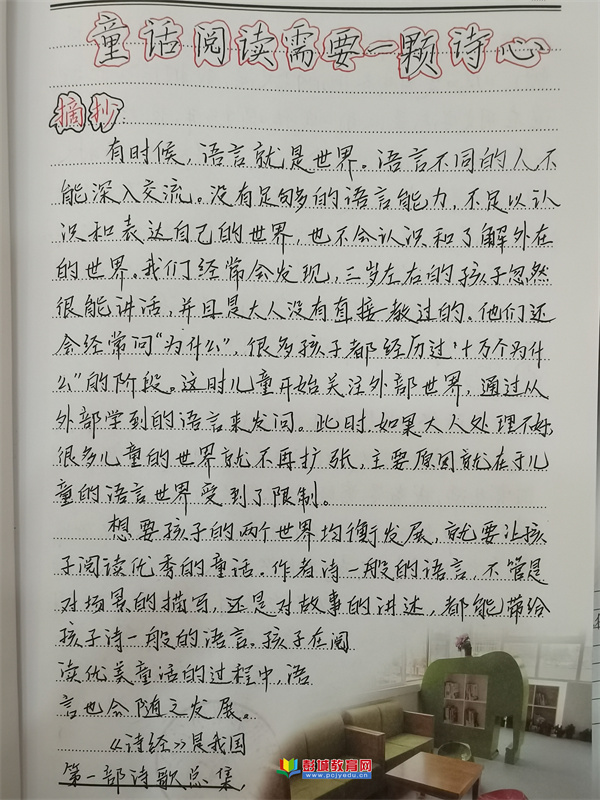 童话阅读需要一颗诗心
摘抄
有时候,语言就是世界。语言不同的人不
能深入交流。没有足够多的语言能力,不足以认
识和表达自己的世界,也不会认识和了解外在
的世界。我们经常会发现,三岁左右的孩子忽然
很能讲话,并且是大人没有直接教过的。他们还
会经常问“为什么”,很多孩子都经历过“十万个为什
么”的阶段。这时儿童开始关注外部世界,通过从
外部学到的语言来发问。此时,如果大人处理不好,
很多儿童的世界就不再扩张,主要原因就在于儿
童的语言世界受到了限制。
想要孩子的两个世界均衡发展,就要让孩
子阅读优秀的童话。作者诗一般的语言,不管是
对场景的描写,还是对故事的讲述,都能带给
孩子诗一般的语言。孩子在阅
读优美童话的过程中,语
言也会随之发展。
《诗经》是我国
第一部诗歌总集,
彭城教育网
www.pcjyedu.cn